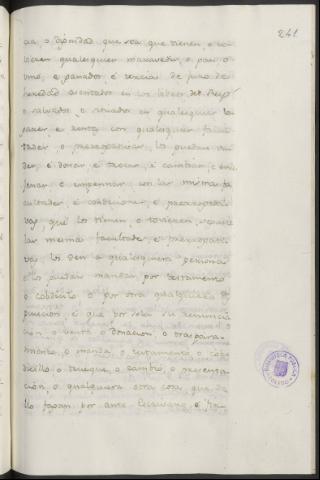 241
ca, o dignidad que sea que tienen, o tu-
bieren qualesquier maravedis, o pan o
vino, e ganados, e tercias de juro de
heredad asentados en los libros del Rey,
o salvados, o situados en qualesquier lu-
gares, e rentas con qualesquier facul-
tades, o prerrogativas, los puedan ven-
der, e donar, e trocar, e cambiar, e ena-
jenar, e empennar, con las mismas fa-
cultades, e condiciones, e prerrogati-
vas que los tienen, o tovieren, e con
las mesmas facultades, e prerrogati-
vas los den a qualesquiera personas
e los puedan mandar por testamento,
o cobdicilo, o por otra qualquiera dis-
pusicion, e que por sola su renuncia-
cion, o venta, o donacion, o traspasa-
miento, o manda, o testamento, o cob-
dicillo, o trueque, o cambio, o presenta-
cion, o qualquiera otra cosa, que de
ello fagan por ante Escrivano, e
BIBLIOTECA PUBLICA
TOLEDO